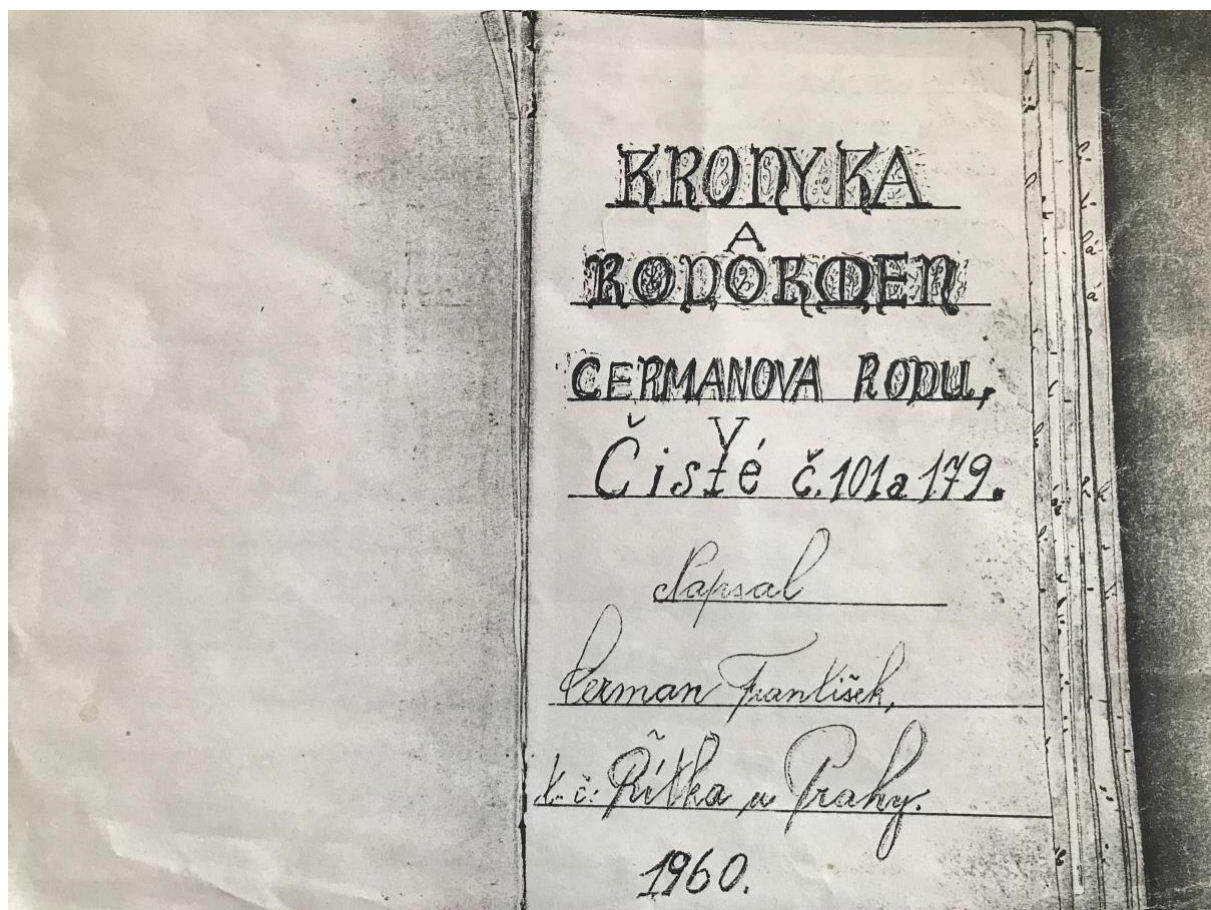 KRONYKA
A
RODOKMEN
CERMANOVA RODU,
V
Čisté č.101a 179.
Napsal
Cerman František,
t. č. Řitka u Prahy.
1960.